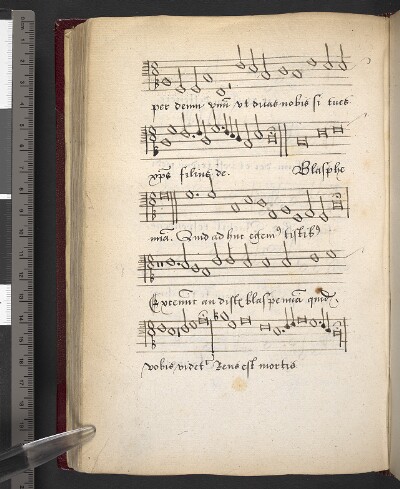 per deum vivū vt dicas nobis si tu es
xp̄s filius dei. Blasphe
mia. Quid adhuc egem9 testib9
Ecce nūc audistꝭ blasphemiā quid
vobis videt Reus est mortis